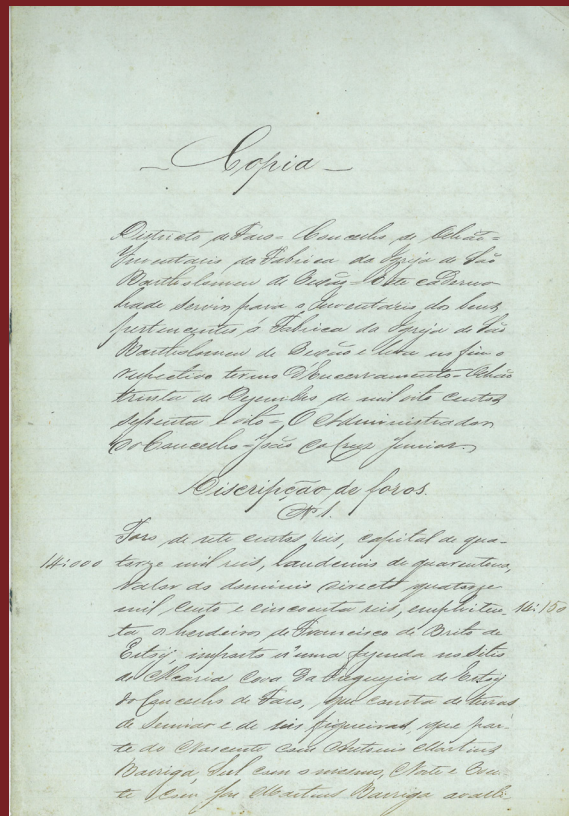 Copia
Districto de Faro = Concelho de Olhão =
Inventario da Fabrica da Igreja de São
Bartholomeu de Pexão = Este caderno
hade servir para o Inventario dos bens
pertencentes á Fabrica da Igreja de São
Bartholomeu de Pexão e leva no fim o
respectivo termo d'Encerramento = Olhão
trinta de Dezembro de mil oito centos
setenta e oito = O Administrador
do Concelho = João da Cruz Junior
Discripção de foros.
Nº 1.
Foro de sete centos reis, capital de qua-
14:000 torze mil reis, laudemio de quarentena,
valor do dominio directo quatorze
mil cento e cincoenta reis, emphiteu- 14:150
ta os herdeiros de Francisco de Brito de
Estoy, imposto n'uma fazenda no sitio
de Maria Cova da Freguezia de Estoy
do Concelho de Faro, que consta de terras
de Semear e de seis figueiras, que par-
te do Nascente com Antonio Martins
Barriga, Sul com o mesmo, Norte e Poen-
te com José Martins Barriga